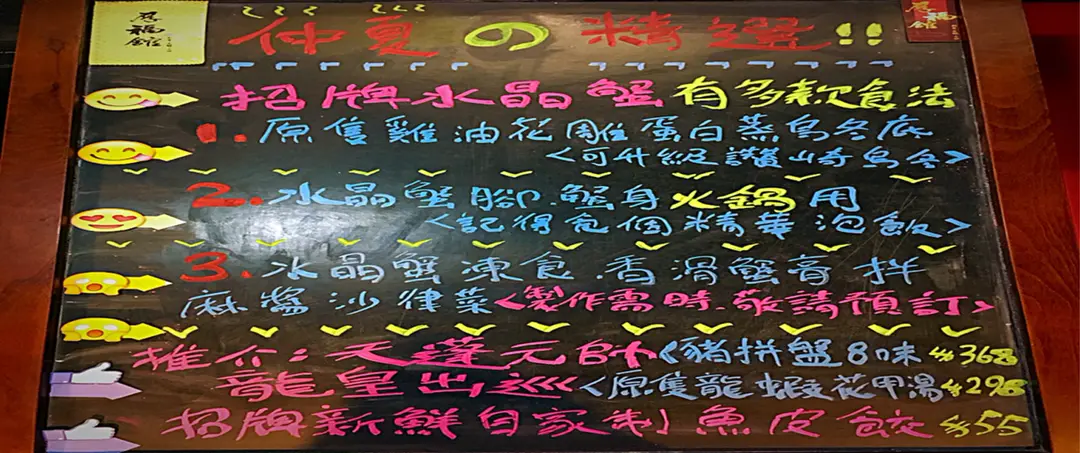 福館
仲夏の精選!!
招牌水晶蟹有多款食法
1. 原隻雞油花雕蛋白蒸烏冬底
<可升級讚岐烏冬>
2. 水晶蟹腳.蟹身火鍋用
<記得食個精華泡飯>
3. 水晶蟹凍食.香滑蟹膏拌
麻醬沙律菜<製作需時.敬請預訂>
推介:天蓬元帥<豬拼盤8味 $368
龍皇出巡<原隻龍蝦花甲湯 $298
招牌新鮮自家制魚皮餃 $55